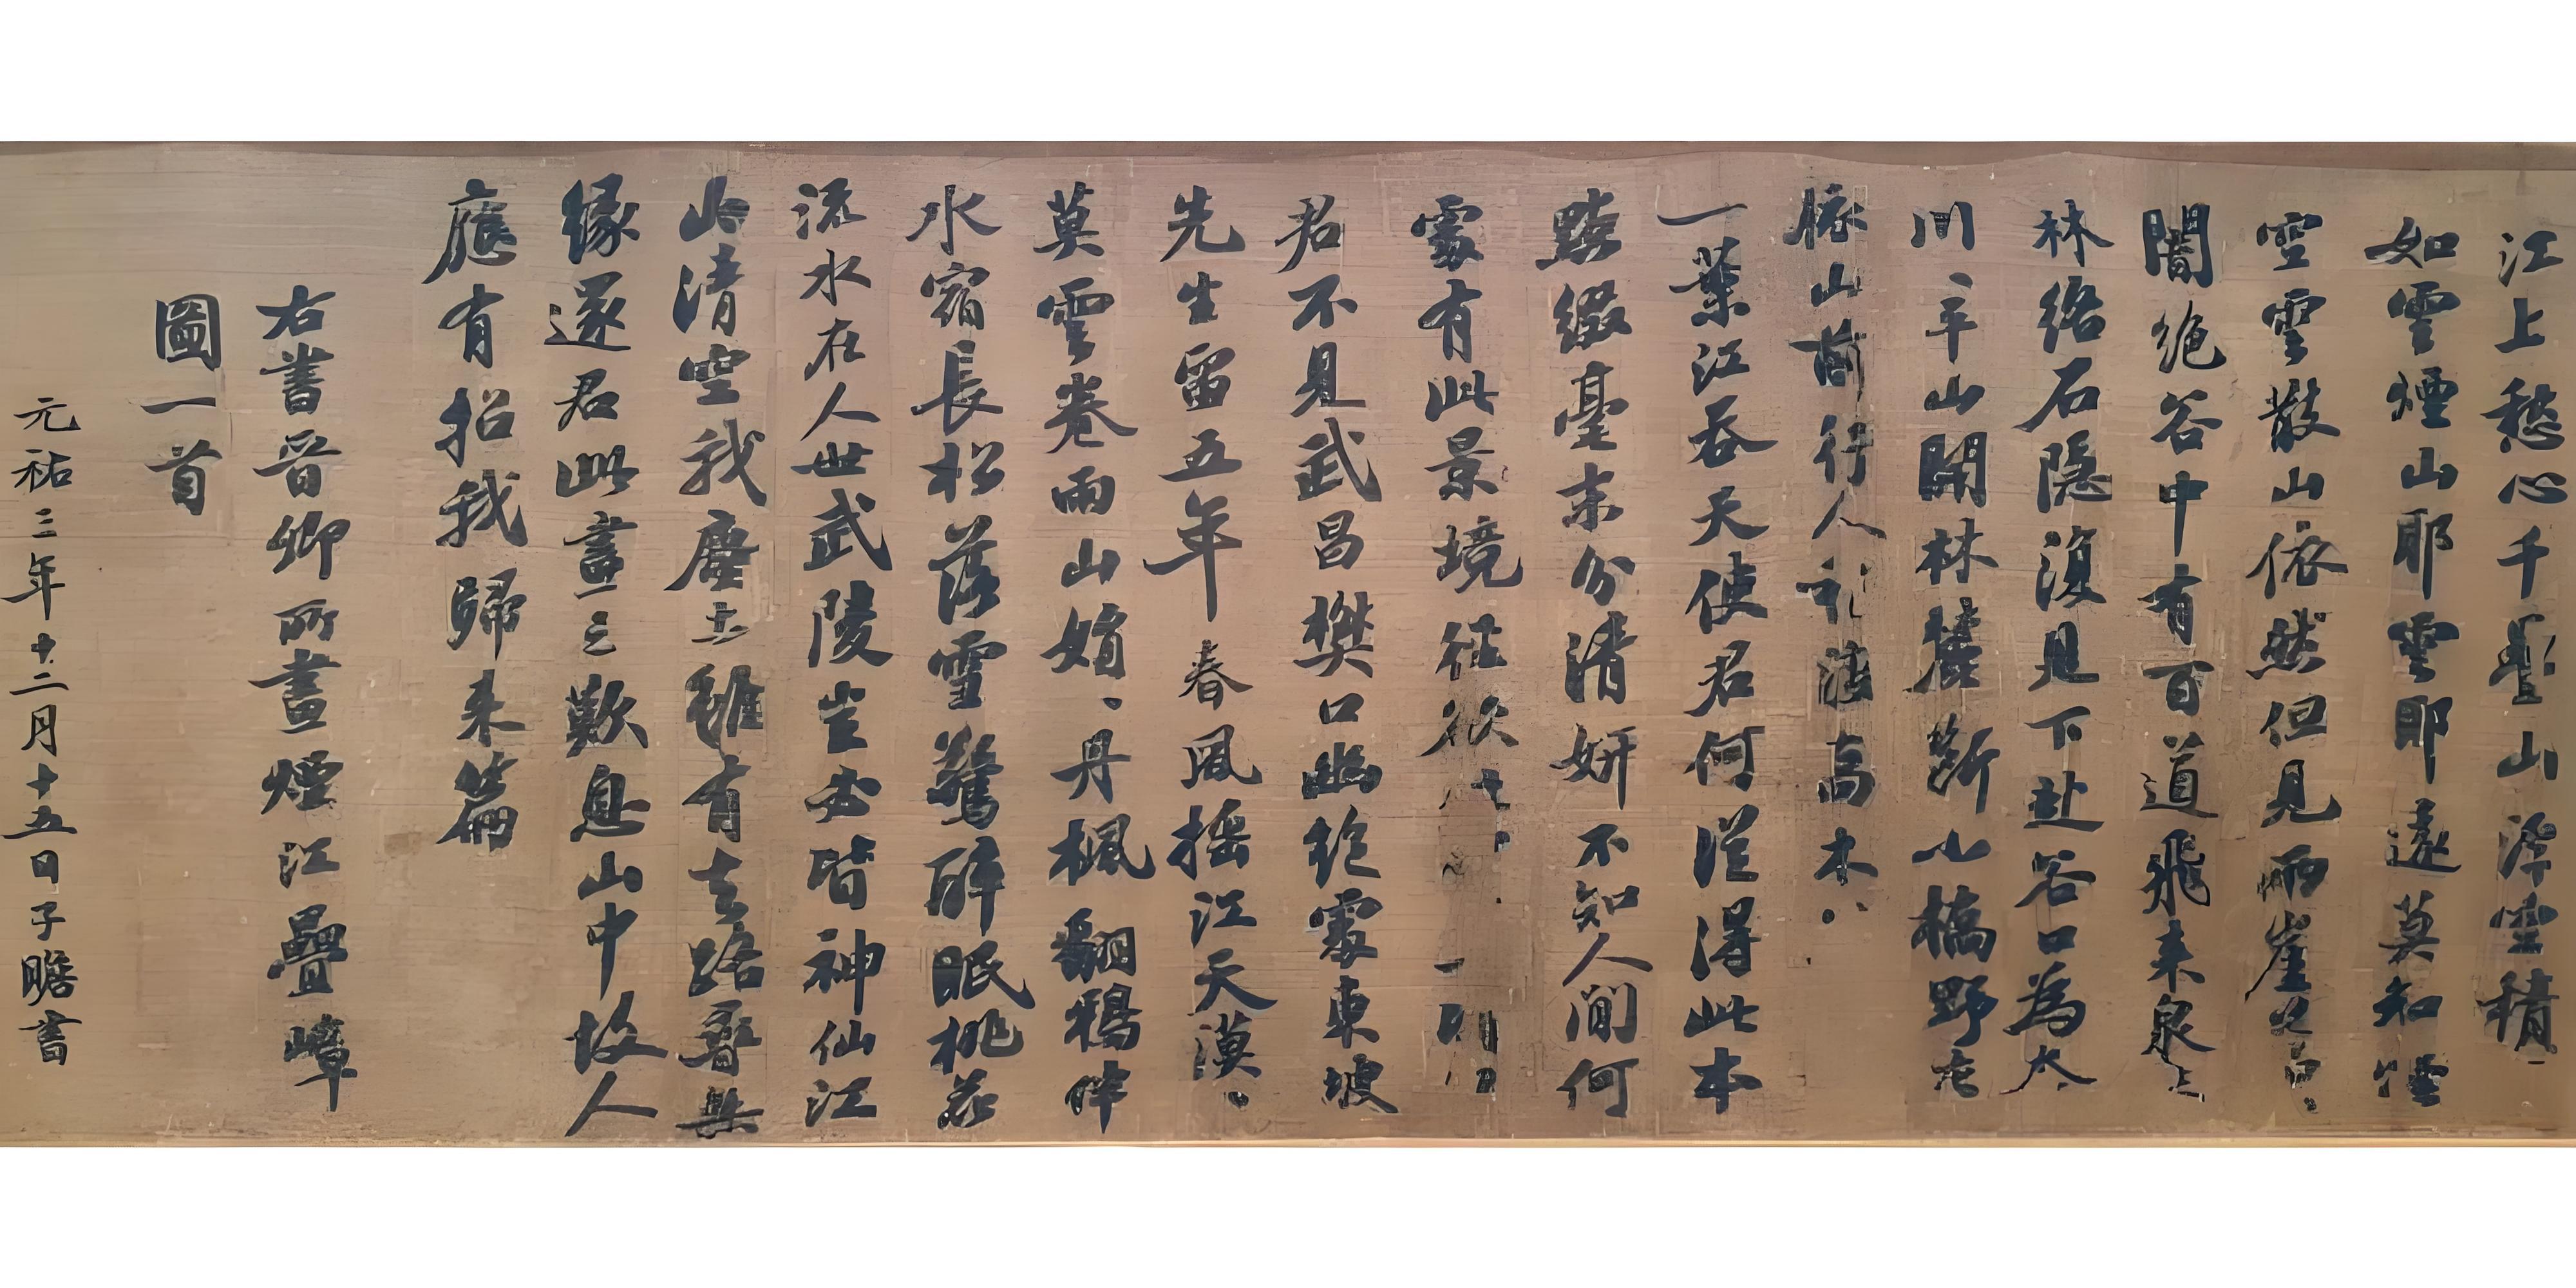 江上愁心千疊山浮空積
如雲煙山耶雲耶遠莫知煙
空雲散山依然但見兩崖
闇絶谷中有百道飛来泉
林絡石隱復見下赴谷口為
川平山開林麓斷小橋野
依山前行人渡高木
一葉江吞天使君何從得此本
點綴毫末分清妍不知人間何
處有此景境徑欲
君不見武昌樊口幽絶處東坡
先生留五年春風摇江天漠、
莫雲卷雨山娟、丹楓翻鴉伴
水宿長松落雪驚醉眠桃花
流水在人世武陵豈必皆神仙江
山清空我塵土雖有去路尋無
緣還君此畫三歎息山中故人
應有招我歸来篇
右書晉卿所畫煙江疊嶂
圖一首
元祐三年十二月十五日子瞻書